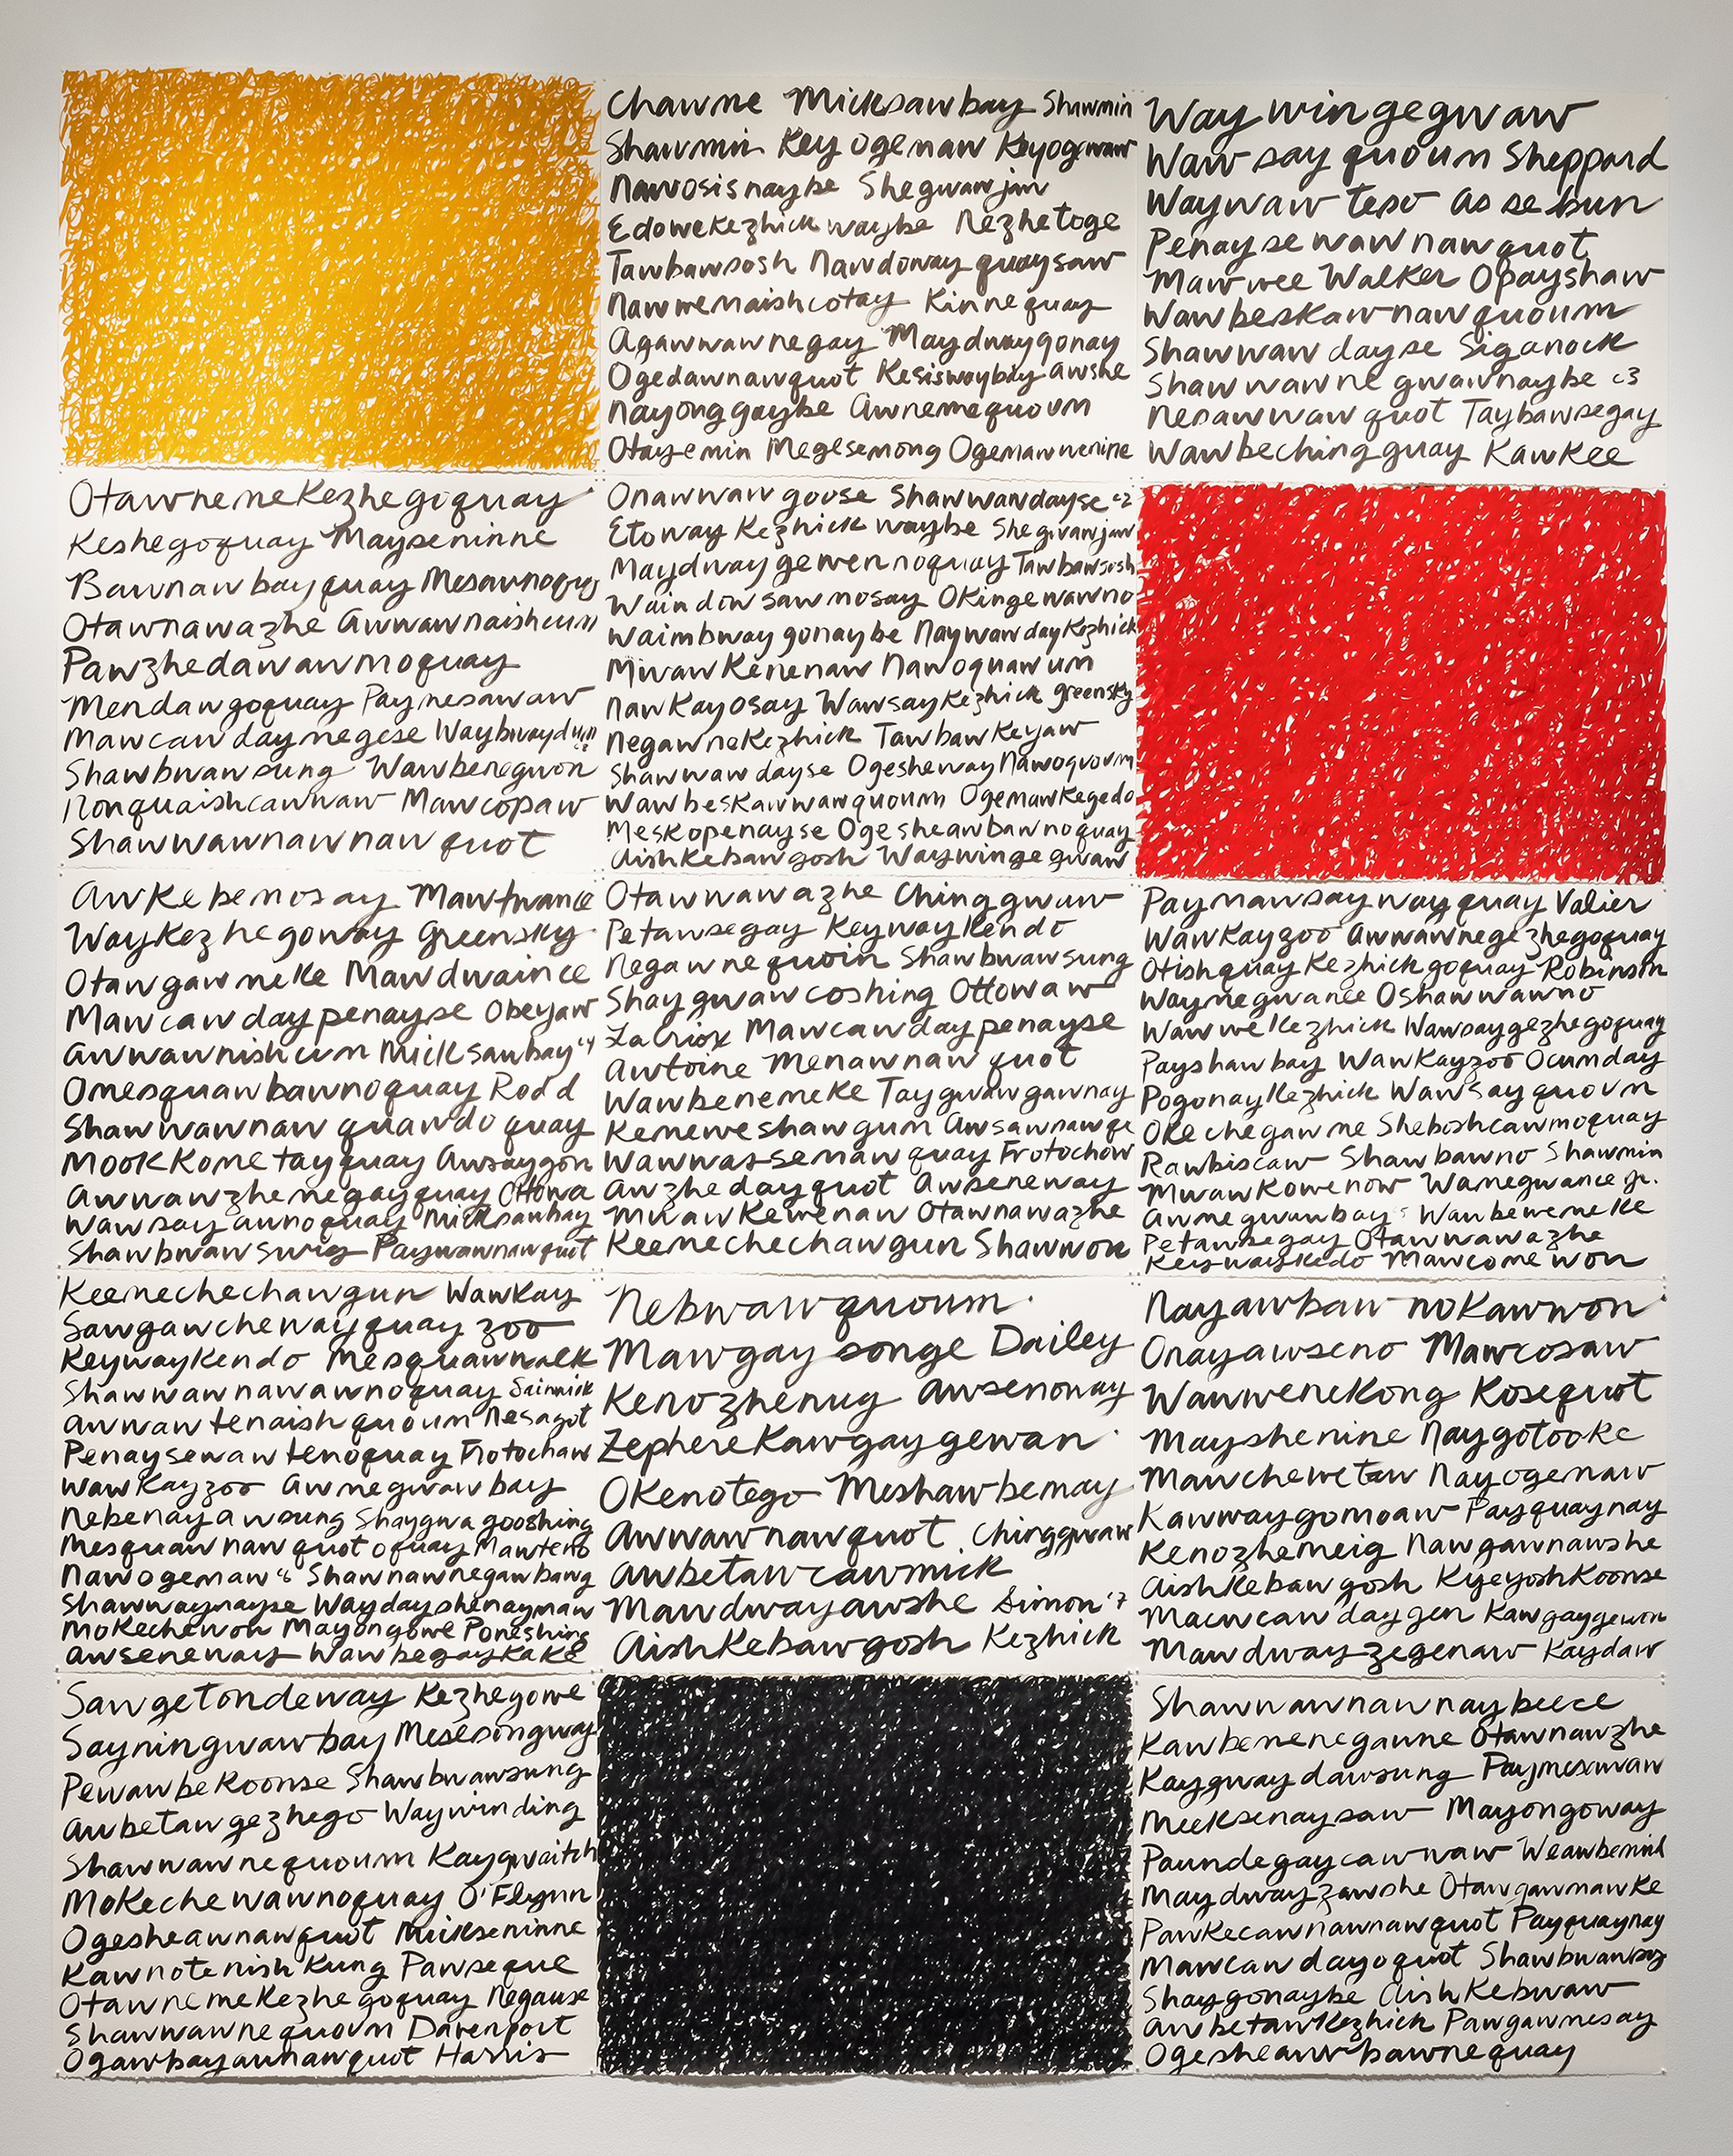 Chawne Micksawbay Shawmin
Shawmin Key ogemaw Keyogwaw
Nawosisnaybe Shegwawjaw
Edowekezhick waybe Nezhetoge
Tawbawsosh Nawdoway quaysaw
Nawwemaishcotay Kinnequay
Agawwawnegay Maydwaygonay
Ogedawnawquot Kesiswaybay awshe
Nayonggaybe Awnemequoum
Otayemin Megesemong Ogemawwenine
Way wingegwaw
Wawsayquoum Sheppard
Waywaw teso as se bun
Penaysewawnawquot
Mawwee Walker Opayshaw
Wawbeskawnawquoum
Shawwawdayse Siganock
Shawwawnegwawnaybe
Nesawwawquot Taybawsegay
Wawbechingguay Kawkee
Otawnemekezhegoquay
Keshegoquay Mayseninne
Bawnawbayquay
Otawnawazhe Awwawnaishcum
Pawzhedawawmoquay
Mendawgoquay Paynesawaw
Mawcawdaynegese
Shawbwawsung Wawbenegwon
Nonquaishcawwaw Mawcopaw
Shawwawnawnawquot
Onawwawgoose Shawwawdayse "2
Etoway Kezhick waybe Shegwawjaw
Maydwaygewennoquay Tawbawsosh
Waindowsawmosay Okingewawno
Waimbwaygonaybe Naywawdaykezhick
Mwawkenenaw Nawoquawum
Nawkayosay Wawsaykezhick Greensky
Negawnekezhick Tawbawkeyaw
Shawwawdayse Ogesheway Nawoquoum
Wawbeskawwawquoum Ogemawkegedo
Meskopenayse Ogesheawbawnoquay
Aishkebawgosh Waywingegwaw
Awkebemosay Mawtwance
Waykezhegoway Greensky
Otawgawneke Mawdwaince
Mawcawdaypenayse Obeyaw
Awwawnishcum Micksawbay "4
Omesquawbawnoquay Rodd
Shawwawnawquawdoquay
Mookkometayquay Awsaygon
Awwawzhenegayquay Ottowa
Wawsayawnoquay Micksawbay
Shawbwawsung Paywawnawquot
Otawwawazhe Chinggwaw
Petawsegay Keywaykendo
Negawnequoin Shawbwawsung
Shaygwawcoshing Ottowaw
LaCroix Mawcawdaypenayse
Awtoine Menawnawquot
Wawbenemeke Taygwawgawnay
Kemeweshawgum Awsawnawqe
Wawwassemawquay Frotochow
Awzhedayquot Awseneway
Mwawkewenaw Otawnawazhe
Keenechechawgun Shawwon
Paymawsaywayquay Valier
Wawkayzoo Awwawnegezhegoquay
Otishquaykezhickgoquay Robinson
Waynegwance Oshawwawno
Wawwekezhick Wawsaygezhegoquay
Payshawbay Wawkayzoo Ocunday
Pogonaykezhick Wawsayquoum
Okechegawme Sheboshcawmoquay
Rawbiscaw Shawbawno Shawmin
Mwawkowenow Wamegwance Jr.
Awnegwawbay Wawbewemeke
Petawsegay Otawwawazhe
Keywaykedo Mawcomewon
Keenechechawgun Wawkay
Sawgawchewayquay zoo
Keywaykendo Mesquawwalk
Shawwawnawawnoquay
Awwawtenaishquoum Nesagot
Penaysewawtenoquay Frotochaw
Wawkayzoo Awnegwawbay
Nebenayawsung Shaygwagooshing
Mesquawnawquotoquay Mawteno
Nawogemaw "6 Shawnawnegawbawg
Shawwaynayse Waydayshenaymaw
Mokechewon Mayongowe Poneshing
Awseneway Wawbegaykake
Nebwawquoum
Mawgaysonge Dailey
Kenozhenug Awsenoway
Zephere Kawgaygewan
Okenotego Meshawbemay
Awwawnawquot Chinggwaw
Awbetawcawmick
Mawdwayawshe Simon "7
Aishkebawgosh Kezhick
Nayawbawnokawwon
Onayawseno Mawcosaw
Wawwenekong Kosequot
Mayshenine Naygotooke
Mawchewetaw Nayogemaw
Kawwaygomoaw Payquaynay
Kenozhemeig Nawgawnawshe
Aishkebawgosh Kyeyoshkoonse
Macwcawdaygen Kawgaygewon
Mawdwayzegenaw Kaydaw
Sawgetondeway Kezhegowe
Sayningwawbay Mesesongway
Pewawbekoonse Shawbwawsung
Awbetawgezhego Waywinding
Shawwawnequoum Kaygwaitch
Mokechewawnoquay O'Flynn
Ogesheawnawquot Mickseninne
Kawnotenishkung Pawseque
Otawnemekezhegoquay Negause
Shawwawnequoum Davenport
Ogawbayawnawquot Harris
Shawwawnawnaybeece
Kawbenenegawne Otawnawzhe
Kaygwaydawsung Paymesawaw
Meeksenaysaw Mayongoway
Paundegaycawwaw Weawbemind
Maydwayzawshe Otawgawnawke
Pawkecawnawnawquot Payquaynay
Mawcawdayoquot Shawbwawsog
Shaygonaybe Aishkebwaw
Awbetawkezhick Pawgawnesay
Ogesheawbawnequay